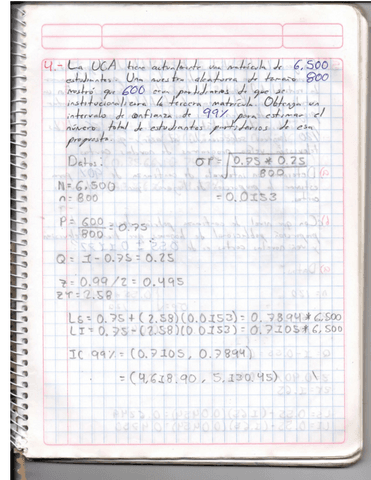 4.- La UCA tiene actualmente una matrícula de 6.500
estudiantes. Una muestra aleatoria de tamaño 800
mostró que 600 eran partidarios de que se
institucionalizara la tercera matrícula. Obtenga un
intervalo de confianza de 99% para estimar el
número total de estudiantes partidarios de esa
propuesta.
Datos: σp = √0.75 * 0.25 / 800
N = 6.500 = 0.0153
n = 800
P = 600/800 = 0.75
Q = 1 - 0.75 = 0.25
z = 0.99/2 = 0.495
zr = 2.58
LS = 0.75 + (2.58)(0.0153) = 0.7894 * 6,500
LI = 0.75 - (2.58)(0.0153) = 0.7105 * 6,500
IC 99% = (0.7105, 0.7894)
= (4,618.90, 5,130.45)